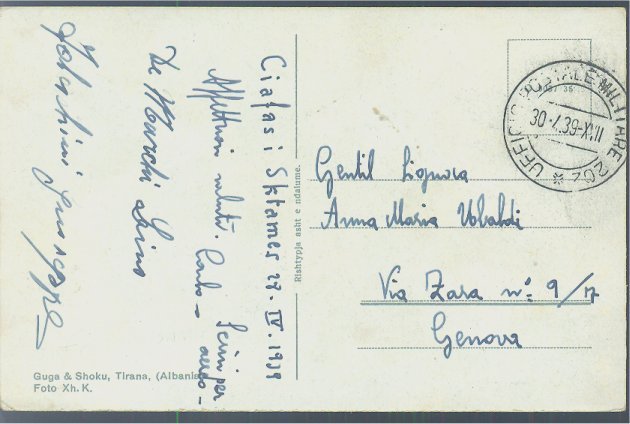 Ciafasi Sktames 27. IV. 1939
Affettuosi saluti. Carlo -
De Marchi Lino
Giuseppe
Rishtypja asht e ndalume.
Guga & Shoku, Tirana, (Albania
Foto Xh. K.
UFFICIO POSTALE MILITARE 202
30·4.39-XVII
Gentil Signora
Anna Maria Ubaldi
Via Zara nº 9/17
Genova